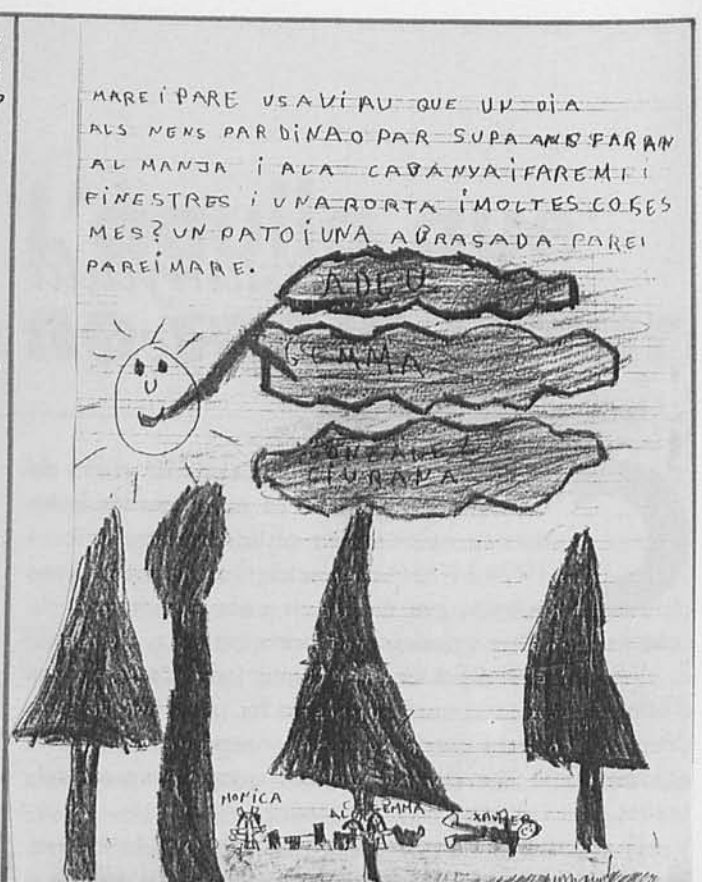 MARE i PARE USAViAU QUE UN DiA
ALS NENS PAR DiNA O PAR SUPA ANS FARAN
AL MANJA i A LA CABANYA i FAREM
FiNESTRES i UNA PORTA i MOLTES COSES
MES? UN PATO i UNA ABRASADA PARE i
PARE i MARE.
ADEU
GEMMA
GONZALEZ
CiURANA
MONiCA
GEMMA
XAViER